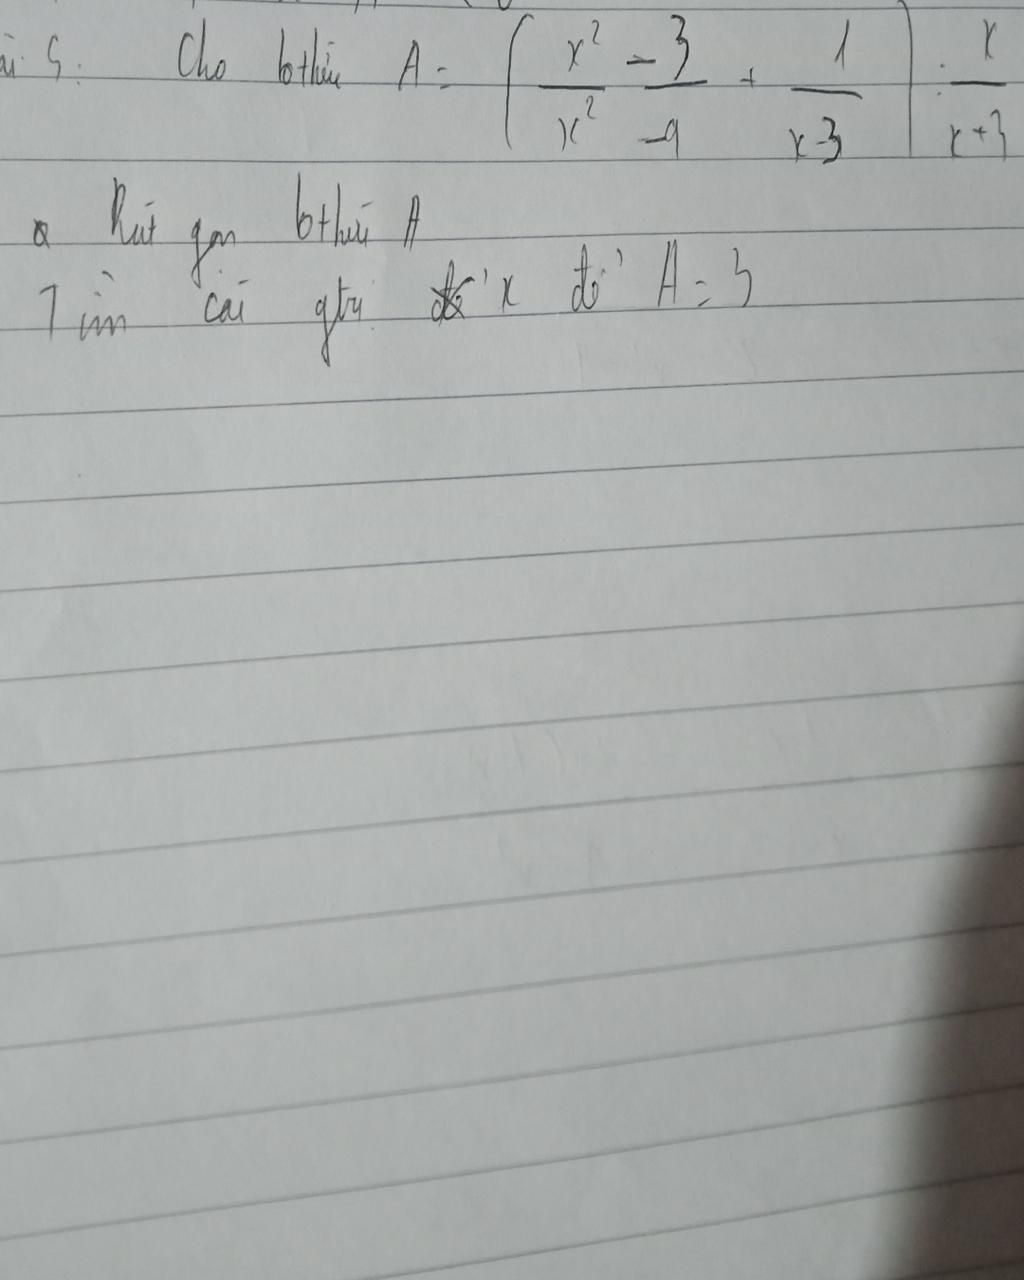 ài 5: Cho bthức A = ( x² - 3 / x² - 9 + 1 / x-3 ) : x / x+3
a Rút gọn bthức A
Tìm các gtrị x để A = 3